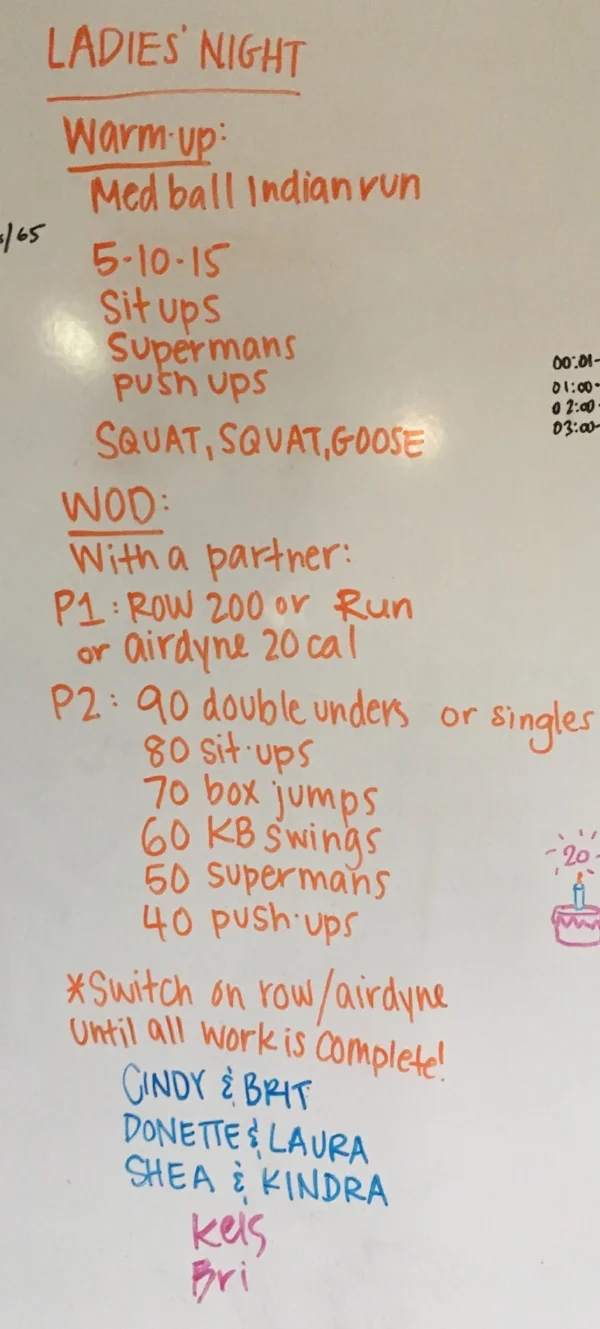 LADIES' NIGHT
Warm-up:
Med ball Indian run
/65
5-10-15
Sit ups
Supermans
push ups
00:01-
01:00-
02:00-
03:00-
SQUAT, SQUAT, GOOSE
WOD:
With a partner:
P1: ROW 200 or Run
or airdyne 20 cal
P2: 90 double unders or singles
80 sit-ups
70 box jumps
60 KB swings
50 supermans
40 push-ups
20
*Switch on row/airdyne
until all work is complete!
CINDY & BRIT
DONETTE & LAURA
SHEA & KINDRA
Kels
Bri